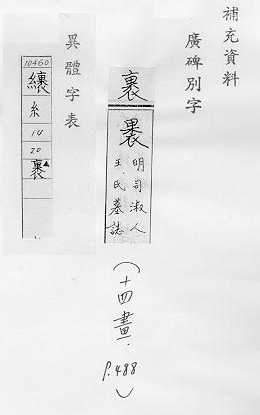 補充資料
廣碑別字
裹
明司淑人
王氏墓誌
(十四畫.
P.488)
異體字表
10460
糸
14
20
裹